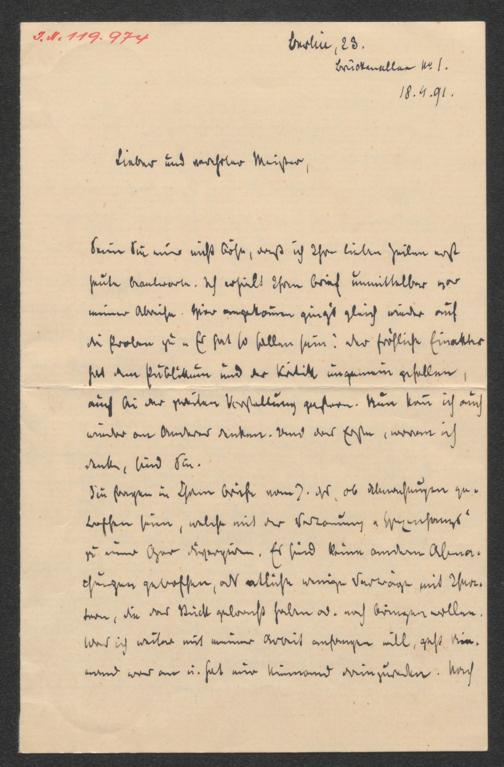 J.N. 119.974
Berlin, 23.
Brückenallee No 1.
18.4.91.
Lieber und verehrter Meister,
Seien Sie mir nicht böse, daß ich Ihre lieben Zeilen erst
heute beantworte. Ich erhielt Ihren Brief unmittelbar vor
meiner Abreise. Hier angekommen ging's gleich wieder auf
die Proben zu Es hat so sollen sein! der fröhliche Einakter
hat dem Publikum und der Kritik ungemein gefallen,
auch bei der zweiten Vorstellung gestern. Nun kann ich auch
wieder an Anderes denken. Und das Erste, woran ich
denke, sind Sie.
Sie fragen in Ihrem Briefe vom 7. ds, ob Abmachungen ge-
troffen seien, welche mit der Vertonung
zu einer Oper Es sind keine anderen Abma-
chungen getroffen, als etliche wenige Verträge mit Thea-
tern, die das Stück gebracht haben od. noch bringen wollen.
Was ich weiter mit meiner Arbeit anfangen will, geht Nie-
mand was an u. hat mir Niemand dreinzureden. Nach